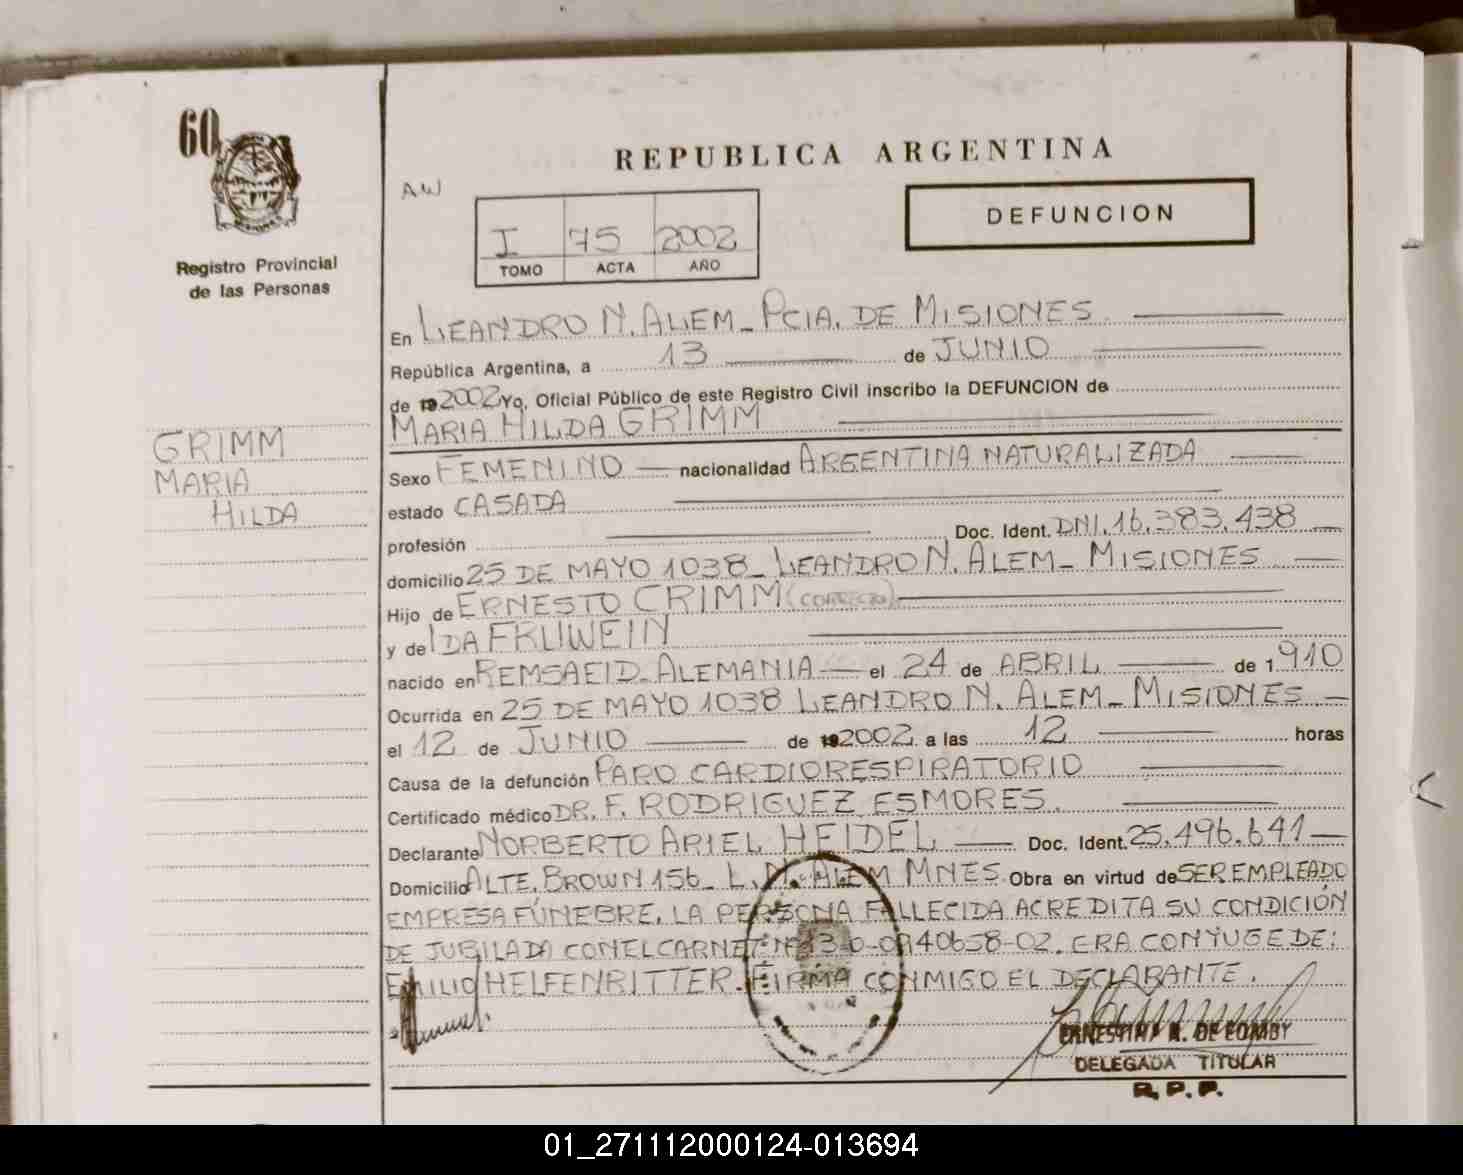 60
REPUBLICA ARGENTINA
AW
DEFUNCION
I 75 2002
TOMO ACTA AÑO
Registro Provincial
de las Personas
En LEANDRO N. ALEM_ PCIA. DE MISIONES.
República Argentina, a 13 de JUNIO
de 192002 Yo, Oficial Público de este Registro Civil inscribo la DEFUNCION de
MARIA HILDA GRIMM
GRIMM
MARIA
HILDA
Sexo FEMENINO nacionalidad ARGENTINA NATURALIZADA
estado CASADA
profesión Doc. Ident. DNI. 16.383.438
domicilio 25 DE MAYO 1038_ LEANDRO N. ALEM_ MISIONES
Hijo de ERNESTO CRIMM (CORRECTO).
y de IDA FRUWEIN
nacido en REMSAEID_ ALEMANIA el 24 de ABRIL de 1910
Ocurrida en 25 DE MAYO 1038 LEANDRO N. ALEM_ MISIONES
el 12 de JUNIO de 192002 a las 12 horas
Causa de la defunción PARO CARDIORESPIRATORIO
Certificado médico DR. F. RODRIGUEZ ESMORES.
Declarante NORBERTO ARIEL HEIDEL Doc. Ident. 25.496.641
Domicilio ALTE. BROWN 156_ L.N. ALEM MNES. Obra en virtud de SER EMPLEADO
EMPRESA FÚNEBRE. LA PERSONA FALLECIDA ACREDITA SU CONDICIÓN
DE JUBILADA CON EL CARNET Nº 13-0-0940658-02. ERA CONYUGE DE:
EMILIO HELFENRITTER. FIRMA CONMIGO EL DECLARANTE.
DELEGADA TITULAR
R. P. P.
01_271112000124-013694